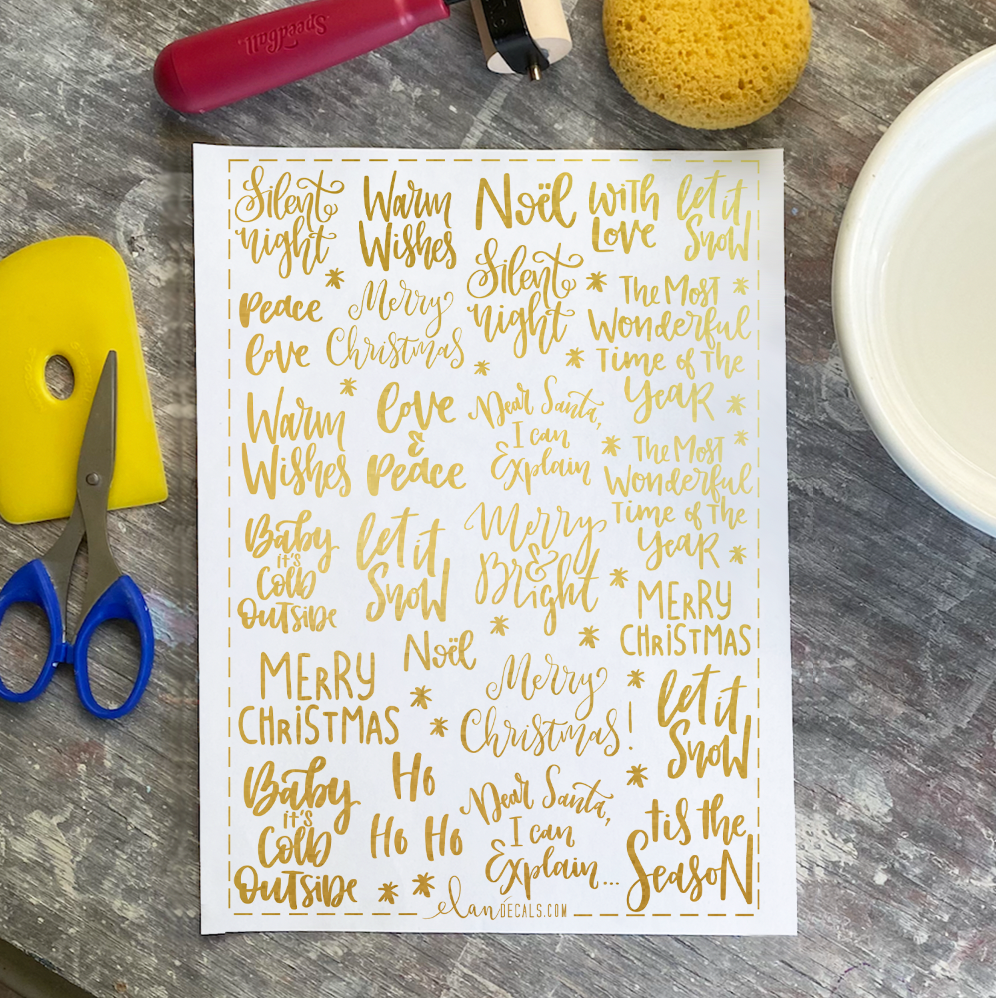 Speedball
Silent
night
Warm
Wishes
Noël
with
Love
let it
Snow
Peace
love
Merry
Christmas
Silent
night
The Most
Wonderful
Time of the
Year
Warm
Wishes
love
&
Peace
Dear Santa,
I can
Explain
The Most
Wonderful
Time of the
Year
Baby
it's
Cold
Outside
let it
Snow
Merry
&
Bright
MERRY
CHRiSTMAS
Noël
MERRY
CHRiSTMAS
Merry
Christmas!
let it
Snow
Baby
it's
Cold
Outside
Ho
Ho Ho
Dear Santa,
I can
Explain...
tis the
Season
elanDECALS.COM